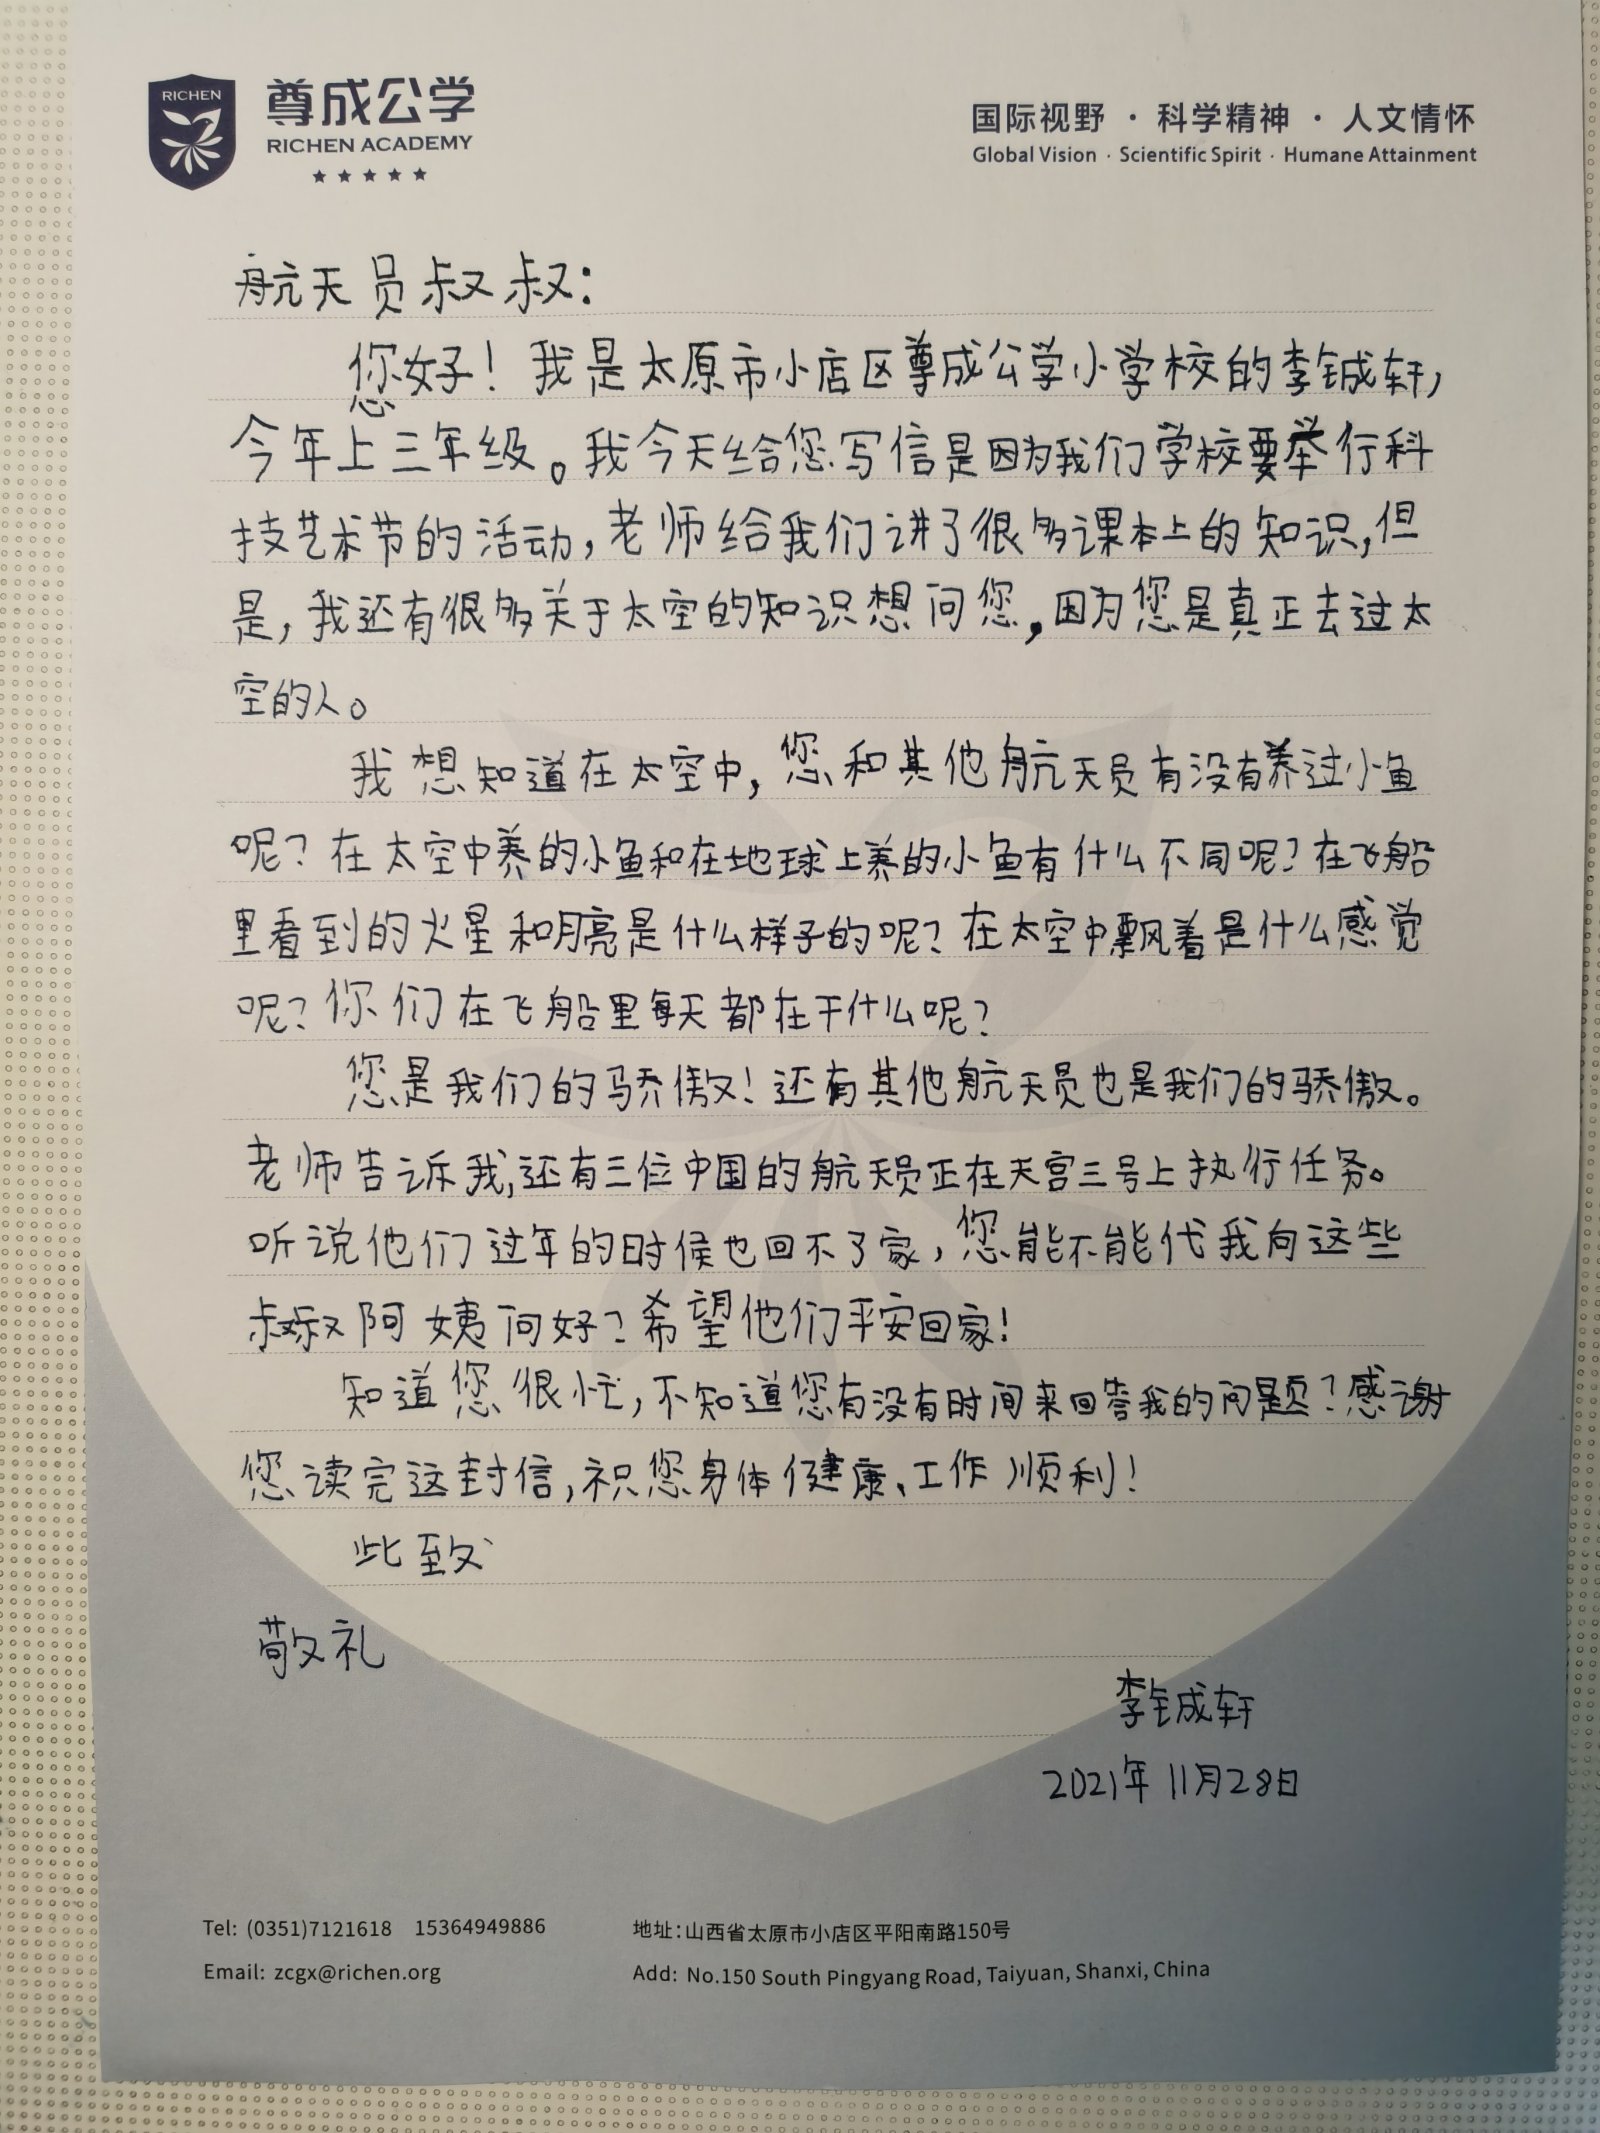 RICHEN
尊成公学
RICHEN ACADEMY
国际视野 · 科学精神 · 人文情怀
Global Vision · Scientific Spirit · Humane Attainment
航天员叔叔：
您好！我是太原市小店区尊成公学小学校的李铖轩，
今年上三年级。我今天给您写信是因为我们学校要举行科
技艺术节的活动，老师给我们讲了很多课本上的知识，但
是，我还有很多关于太空的知识想问您，因为您是真正去过太
空的人。
我想知道在太空中，您和其他航天员有没有养过小鱼
呢？在太空中养的小鱼和在地球上养的小鱼有什么不同呢？在飞船
里看到的火星和月亮是什么样子的呢？在太空中飘着是什么感觉
呢？你们在飞船里每天都在干什么呢？
您是我们的骄傲！还有其他航天员也是我们的骄傲。
老师告诉我，还有三位中国的航天员正在天宫三号上执行任务。
听说他们过年的时候也回不了家，您能不能代我向这些
叔叔阿姨问好？希望他们平安回家！
知道您很忙，不知道您有没有时间来回答我的问题？感谢
您读完这封信，祝您身体健康、工作顺利！
此致
敬礼
李铖轩
2021年11月28日
Tel: (0351)7121618 15364949886
地址：山西省太原市小店区平阳南路150号
Email: zcgx@richen.org
Add: No.150 South Pingyang Road, Taiyuan, Shanxi, China